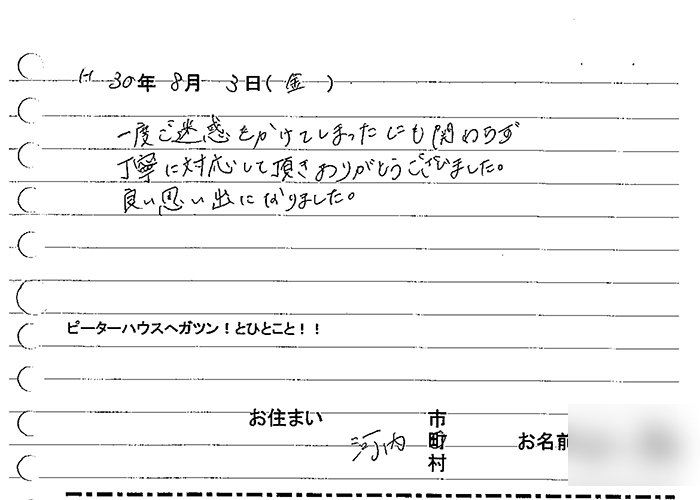 H 30年 8月 3日(金)
一度ご迷惑をかけてしまったにも関わらず
丁寧に対応して頂きありがとうございました。
良い思い出になりました。
ピーターハウスへガツン!とひとこと!!
お住まい 河内 市町村 お名前